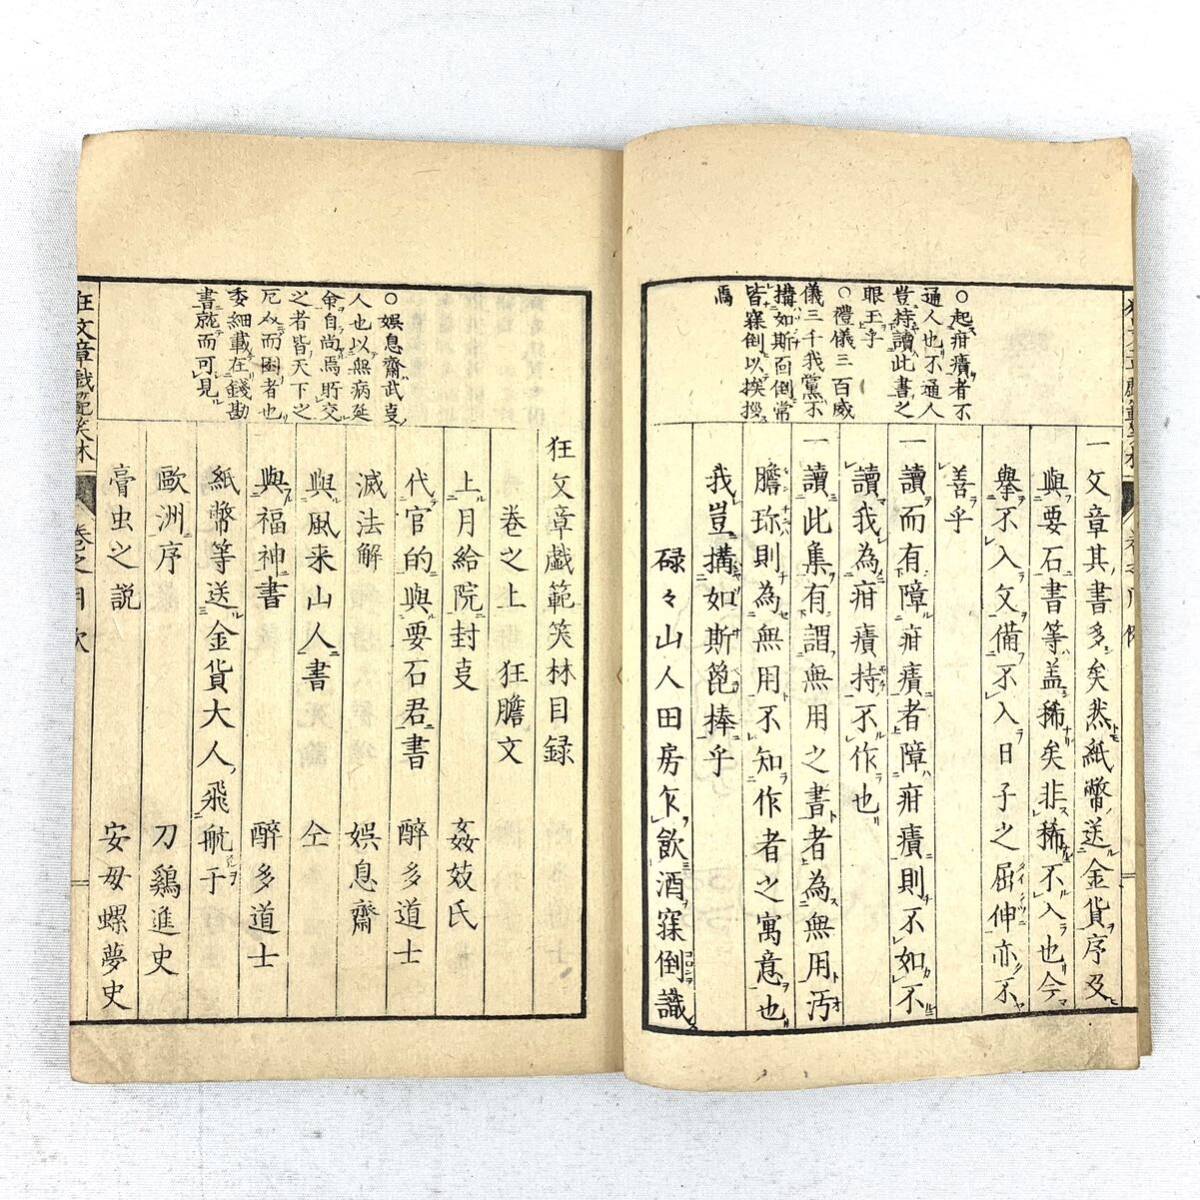 ○起疳癪者不
通人也不通人
豈持讀此書之
眼王乎
○禮儀三百威
儀三千我黨不
搆如斯面倒常
皆寐倒以挨拶
焉
一文章其書多矣然紙幣送金貨序及
與要石書等盖稀矣非稀不入也今
擧不入文備不入日子之屈伸亦不
善乎
一讀而有障疳癪者障疳癪則不如不
讀我為疳癪持不作也
一讀此集有謂無用之書者為無用汚
膽珎則為無用不知作者之寓意也
我豈搆如斯篦捧乎
碌々山人田房乍飲酒寐倒識
○娯息齋武㕝
人也以無病延
命自尚焉貯交
之者皆天下之
厄介而困者也
委細載在錢勘
書就而可見
狂文章戯範笑林目録
卷之上 狂膽文
上月給院封㕝 姦妓氏
代官的與要石君書 醉多道士
滅法解 娯息齋
與風来山人書 仝
與福神書 醉多道士
紙幣等送金貨大人飛航于
歐洲序 刀鷄進史
膏虫之説 安母螺夢史
狂文章戯範笑林 卷之上目次